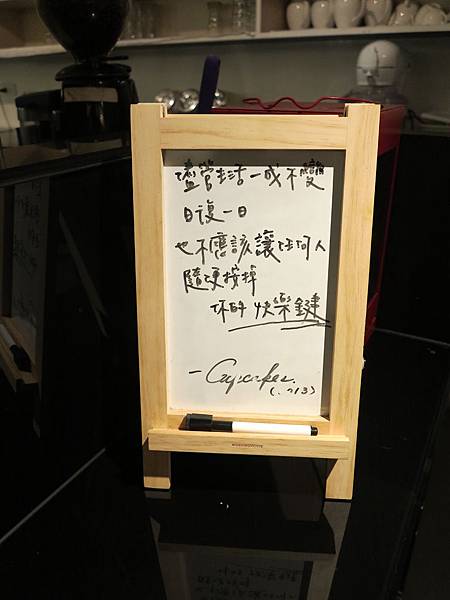 儘管生活一成不變
日復一日
也不應該讓任何人
隨便按掉
你的快樂鍵
- Cupcakes.